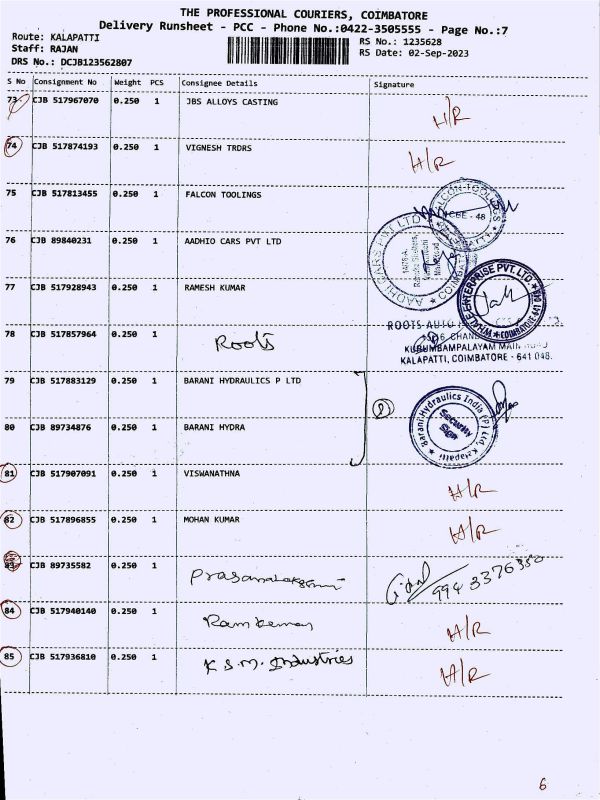 THE PROFESSIONAL COURIERS, COIMBATORE
Delivery Runsheet - PCC - Phone No.:0422-3505555 - Page No.:7
Route: KALAPATTI
Staff: RAJAN
DRS No.: DCJB123562807
RS No.: 1235628
RS Date: 02-Sep-2023
S No Consignment No Weight PCS Consignee Details Signature
73 CJB 517967070 0.250 1 JBS ALLOYS CASTING H/R
74 CJB 517874193 0.250 1 VIGNESH TRDRS H/R
75 CJB 517813455 0.250 1 FALCON TOOLINGS
CBE - 48
76 CJB 89840231 0.250 1 AADHIO CARS PVT LTD
AADHI CARS PVT LTD
77 CJB 517928943 0.250 1 RAMESH KUMAR
ENTERPRISE PVT. LTD.
78 CJB 517857964 0.250 1 Roots
ROOTS AUTO
KURUMBAMPALAYAM MAIN ROAD
KALAPATTI, COIMBATORE - 641 048.
79 CJB 517883129 0.250 1 BARANI HYDRAULICS P LTD
Barani Hydraulics India (P) Ltd, Kalapatti
Security
Sign
80 CJB 89734876 0.250 1 BARANI HYDRA
81 CJB 517907091 0.250 1 VISWANATHNA H/R
82 CJB 517896855 0.250 1 MOHAN KUMAR H/R
83 CJB 89735582 0.250 1
84 CJB 517940140 0.250 1 H/R
85 CJB 517936810 0.250 1 K.S.M. Industries H/R
6